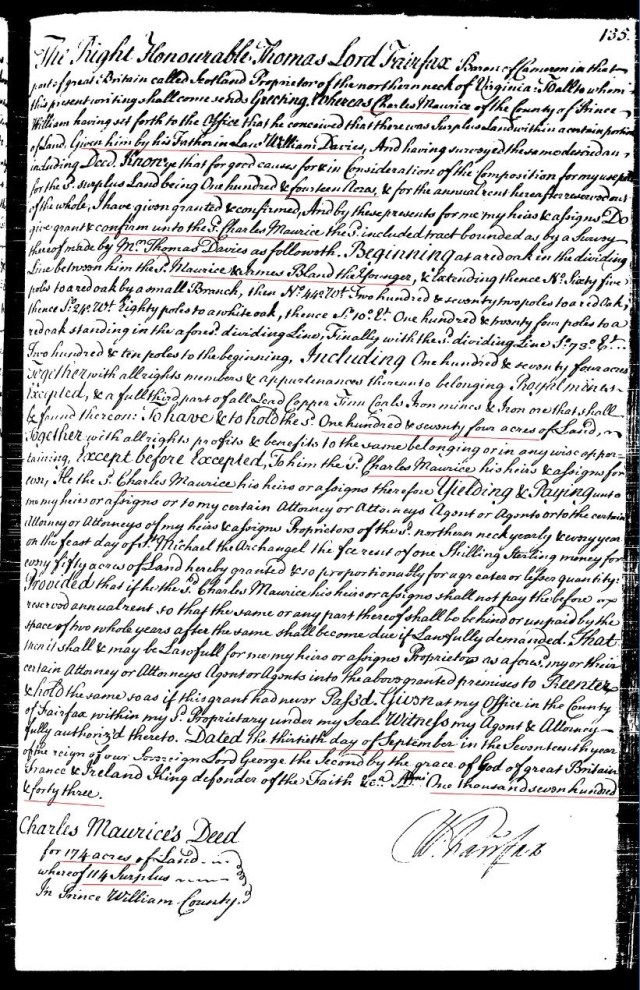 135.
The Right Honourable Thomas Lord Fairfax Baron of Cameron in that
part of great Britain called Scotland Proprietor of the northern neck of Virginia: To all to whom
this present writing shall come sends Greeting. Whereas Charles Maurice of the County of Prince
William having set forth to the Office that he conceived that there was Surplus Land within a certain portion
of Land, Given him by his Father in Law William Davies, And having surveyed the same descri'd an
including Deed, Know ye that for good causes for & in Consideration of the Composition for my use paid
for the sd. surplus Land being One hundred & fourteen Acres, & for the annual rent hereafter reserved out
of the whole, I have given granted & confirmed, And by these presents for me my heirs & assigns Do
give grant & confirm unto the sd. Charles Maurice the sd. included tract bounded as by a Survey
thereof made by Mr. Thomas Davies as followeth. Beginning at a red oak in the dividing
Line between him the sd. Maurice & James Bland the Younger, & Extending thence No. Sixty five
poles to a red oak by a small Branch, then No. 44o. Wt. Two hundred & seventy two poles to a red Oak,
thence So. 24o. Wt. Eighty poles to a white oak, thence So. 10o. Et. One hundred & twenty four poles to a
red oak standing in the afores'd dividing Line, Finally with the sd. dividing Line So. 73o. Et.
Two hundred & ten poles to the beginning, Including One hundred & seventy four acres
Together with all rights members & appurtenances thereunto belonging Royal mines
Excepted, & a full third part of all Lead Copper Tinn Coals Iron mines & Iron ore that shall
be found thereon: To have & to hold the sd. One hundred & seventy four acres of Land,
Together with all rights profits & benefits to the same belonging or in any wise apper-
taining, Except before Excepted, To him the sd. Charles Maurice his heirs & assigns for
ever, He the sd. Charles Maurice his heirs or assigns therefore Yielding & Paying unto
me my heirs or assigns or to my certain Attorney or Attorneys Agent or Agents or to the certain
Attorney or Attorneys of my heirs & assigns Proprietors of the sd. northern neck yearly & every year
on the feast day of St. Michael the Archangel the fee rent of one Shilling Sterling money for
every fifty acres of Land hereby granted & so proportionably for a greater or lesser quantity:
Provided that if he the sd. Charles Maurice his heirs or assigns shall not pay the before
reserved annual rent so that the same or any part thereof shall be behind or unpaid by the
space of two whole years after the same shall become due if Lawfully demanded. That
then it shall & may be Lawfull for me my heirs or assigns Proprietors as afores'd my or their
certain Attorney or Attorneys Agent or Agents into the above granted premises to Reenter
& hold the same so as if this grant had never Pass'd. Given at my Office in the County
of Fairfax within my sd. Proprietary under my Seal. Witness my Agent & Attorney
fully authoriz'd thereto. Dated the thirtieth day of September in the Seventeenth year
of the reign of our Sovereign Lord George the Second by the grace of God of great Britain
France & Ireland King defender of the Faith &ca. One thousand seven hundred
& forty three.
Charles Maurice's Deed
for 174 acres of Land
whereof 114 Surplus
In Prince William County.
W. Fairfax